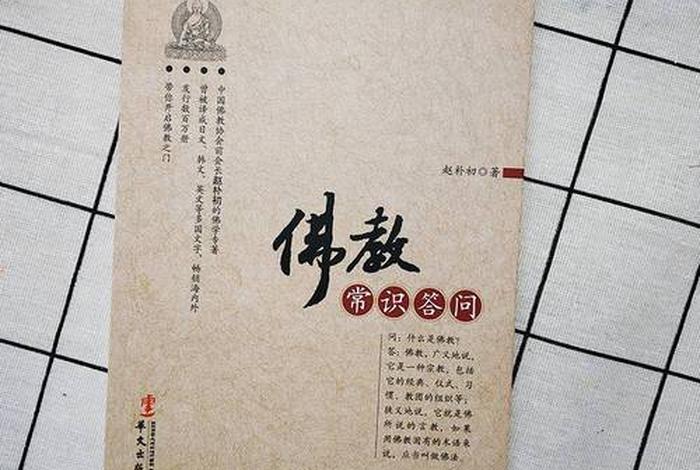 中国佛教协会前会长赵朴初的佛学专著
曾被译成日文、韩文、英文等多国文字，畅销海内外
发行数百万册
带您开启佛教之门
赵朴初◎著
佛教
常识答问
问：什么是佛教？
答：佛教，广义地说，
它是一种宗教，包括
它的经典、仪式、习
惯、教团的组织等；
狭义地说，它就是佛
所说的言教，如果
用佛教固有的术语来
说，应当叫做佛法。
华文出版